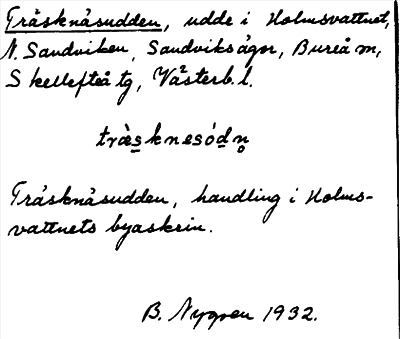 Träsknäsudden, udde i Holmsvattnet,
N. Sandviken, Sandviksågor, Bureå m,
Skellefteå tg, Västerb. l.
træ̀sknesódn̥
Träsknäsudden, handling i Holms-
vattnets byaskrin.
B. Nygren 1932.